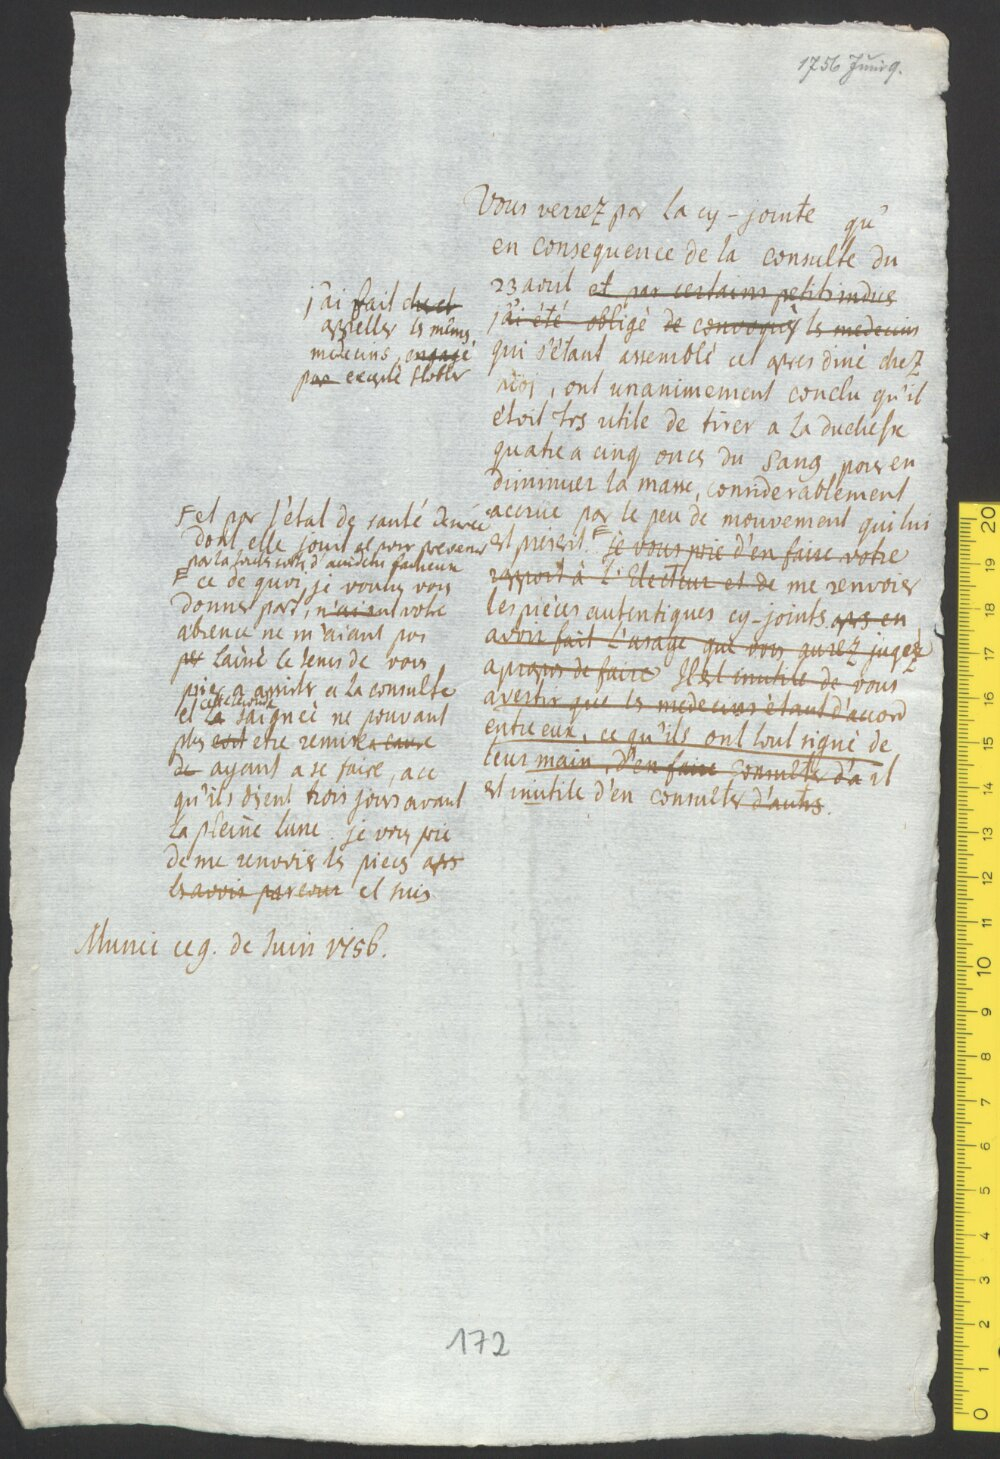 1756 Juni 9.
Vous verrez par la cy-jointe qu'
en consequence de la consulte du
23 avril et par certains petits indices
j'ai été obligé de convoquèr les medecins
qui s'étant assemblé cet apres diné chez
moi, ont unanimement conclu qu'il
étoit trs utile de tirer a la duchesse
quatre a cinq onces du sang pour en
diminuer la masse, considerablement
accrue par le peu de mouvement qui lui
est préscrit. F je vous prie d'en faire votre
rapport à l'Electeur et de me renvoier
les pièces autentiques cy-joints aprs en
avoir fait l'usage que vous jugez
apropos de faire Il est inutile de vous
avertir que les medecins étant d'accord
entre eux, ce qu'ils ont tout signé de
leur main, d'en faire consulte d'a il
est inutile d'en consulter d'autrs.
j'ai fait
appeller les mêmes
médecins, engagé
par
F et par l'état de santé
dont elle jouit et pour prevenir
d'accidens facheux
F ce de quoi je voulus vous
donner part, n'aiant votre
absence ne m'aiant pas
laissé le tems de vous
prier a assister a la consulte
cette seconde
et la saignée ne pouvant
plus etre remise a cause
de ayant a se faire, a ce
qu'ils disent trois jours avant
la pleine lune. je vous prie
de me renvoier les pieces aprs
les avoir parcour et suis
Munic ce 9. de Juin 1756.
172
0 1 2 3 4 5 6 7 8 9 10 11 12 13 14 15 16 17 18 19 20